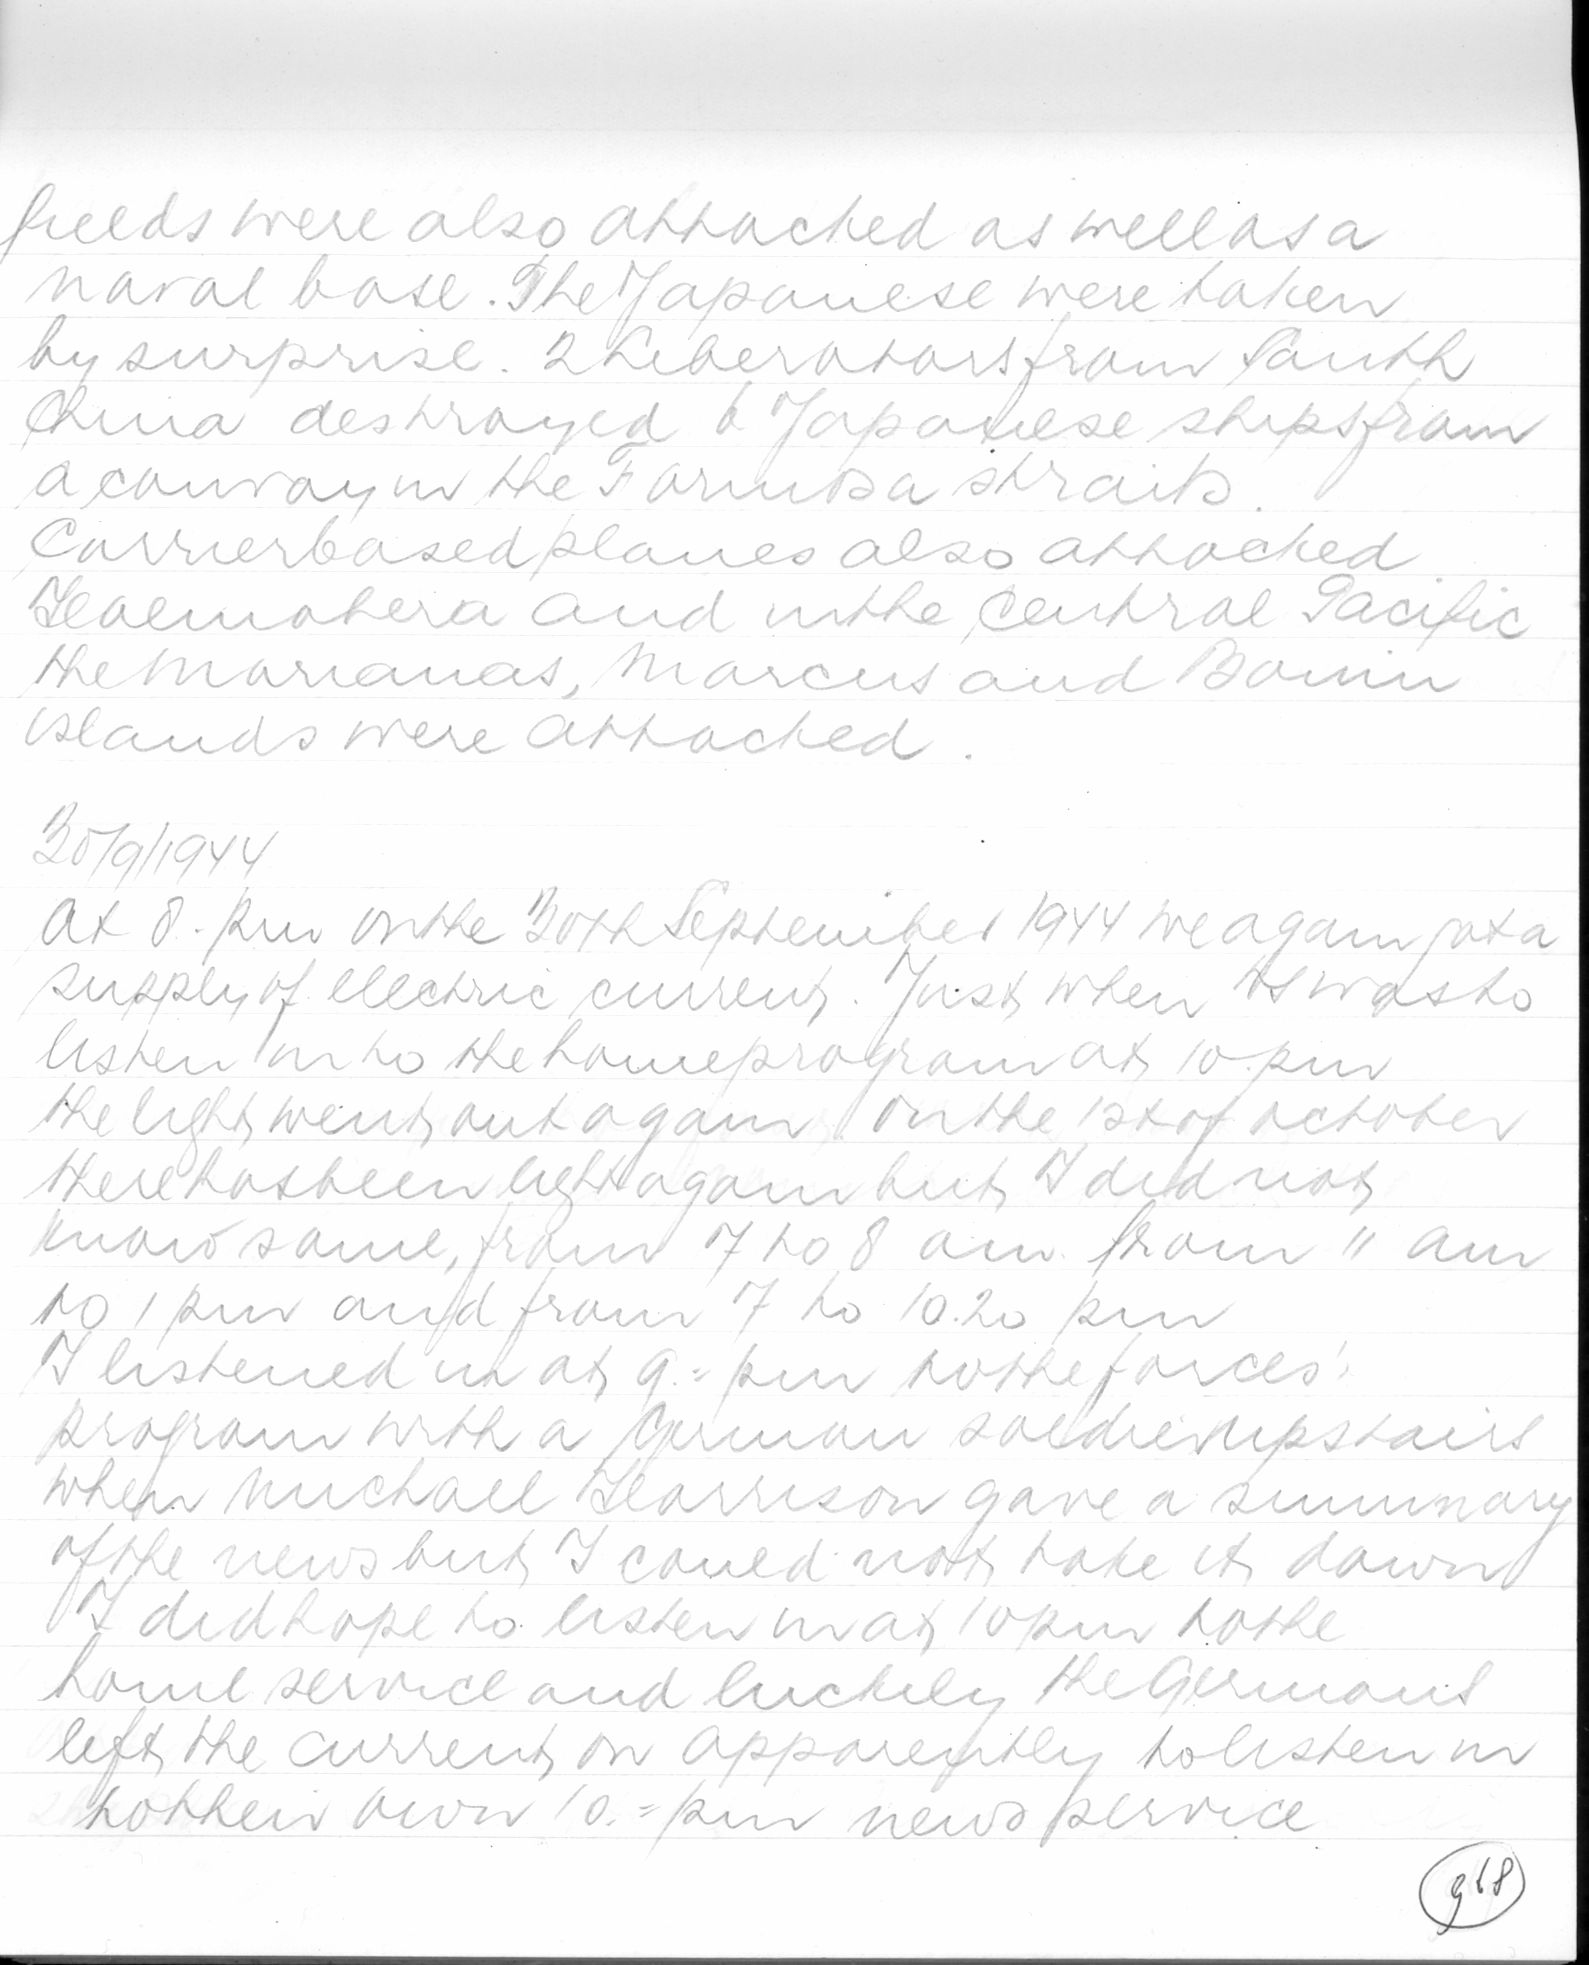 fields were also attacked as well as a
naval base. The Japanese were taken
by surprise. 2 Liberators from South
China destroyed 6 Japanese ships from
a convoy in the Formosa straits.
Carrier based planes also attacked
Halemahera and in the Central Pacific
the Marianas, Marcus and Bonin
islands were attacked.
30/9/1944
At 8.- pm on the 30th September 1944 we again got a
supply of electric current. Just when it was to
listen in to the home program at 10.pm
the light went out again. On the 1st of October
there has been light again but I did not
know same, from 7 to 8 am from 11 am
to 1 pm and from 7 to 10.20 pm
I listened in at 9.= pm to the forces'
program with a German soldier upstairs
when Michael Harrison gave a summary
of the news but I could not take it down
I did hope to listen in at 10 pm to the
home service and luckily the Germans
left the current on apparently to listen in
to their own 10.= pm news service
968